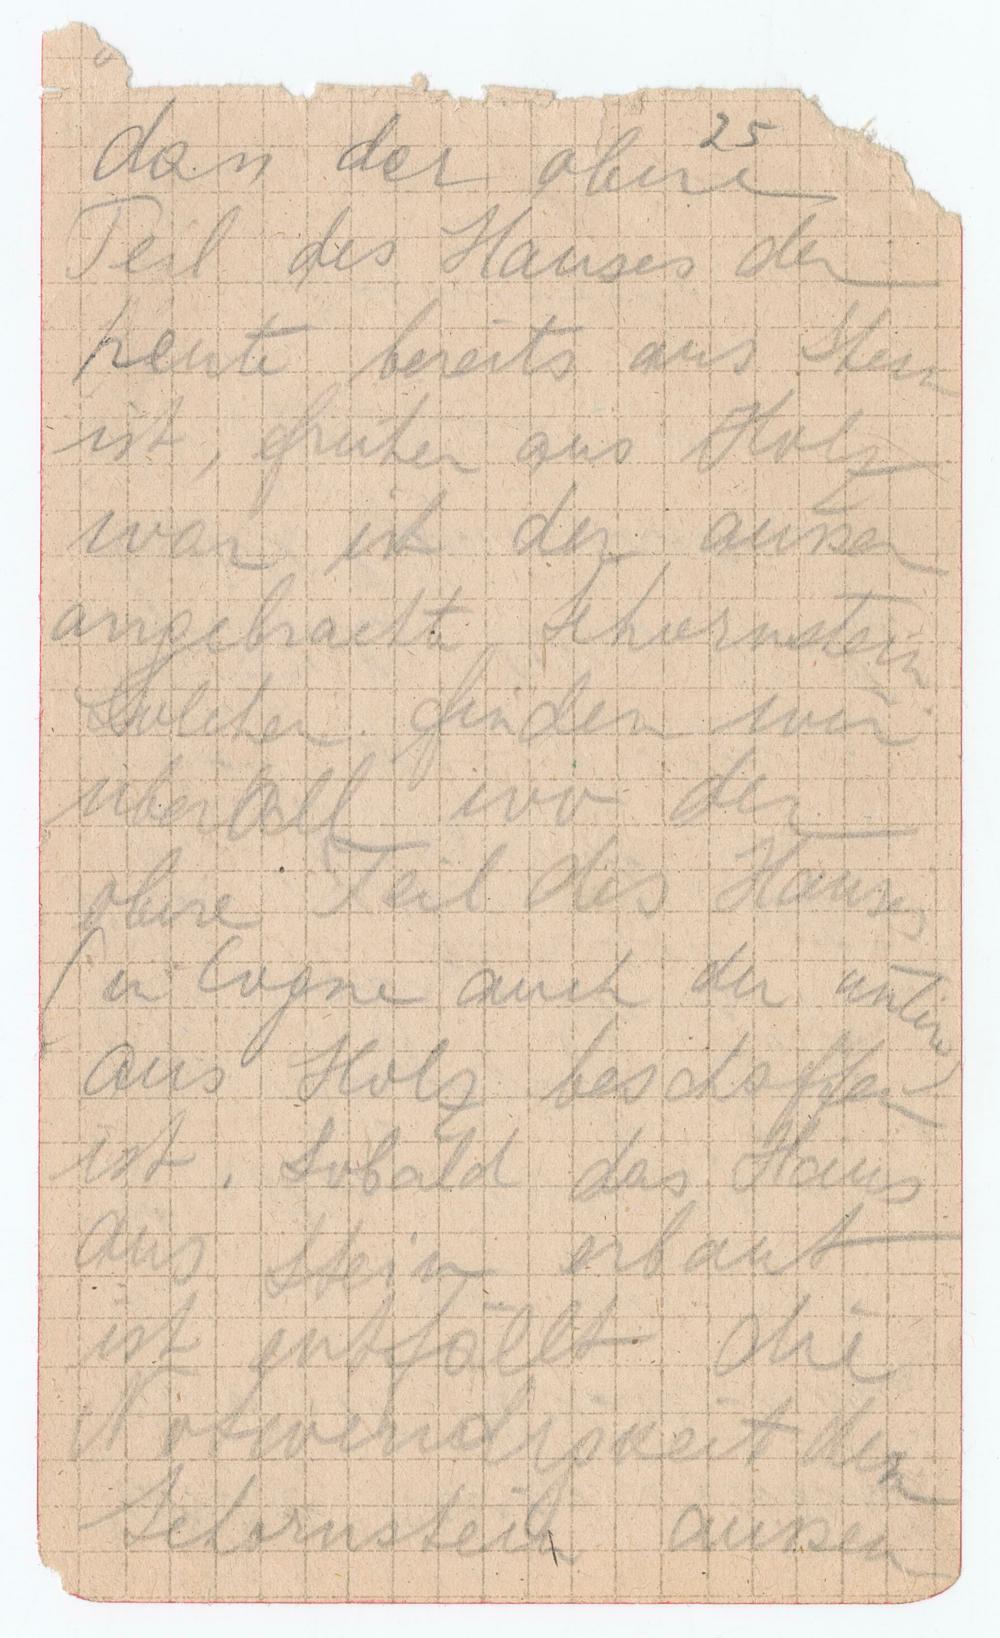 25
dan der obere
Teil des Hauses der
heute bereits aus Stein
ist, früher aus Holz
war ist der aussen
angebracht Schornstein
Solchen finden wir
überall wo der
obere Teil des Hauses
(in Cogne auch der untere)
aus Holz beschaffen
ist. Sobald das Haus
aus Stein erbaut
ist entfällt die
Notwendigkeit den
Schornstein aussen